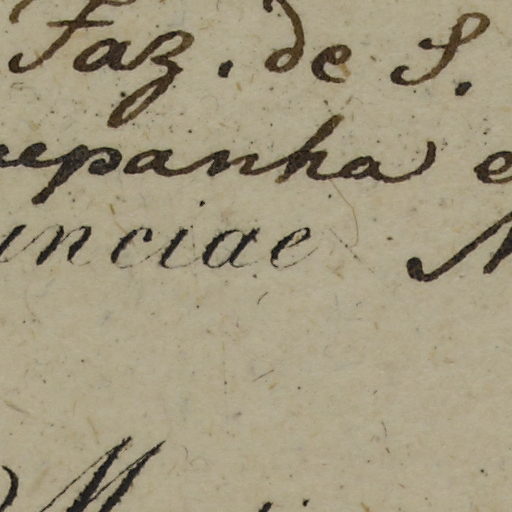 Faz. de S.
epanha e
unciae N
M